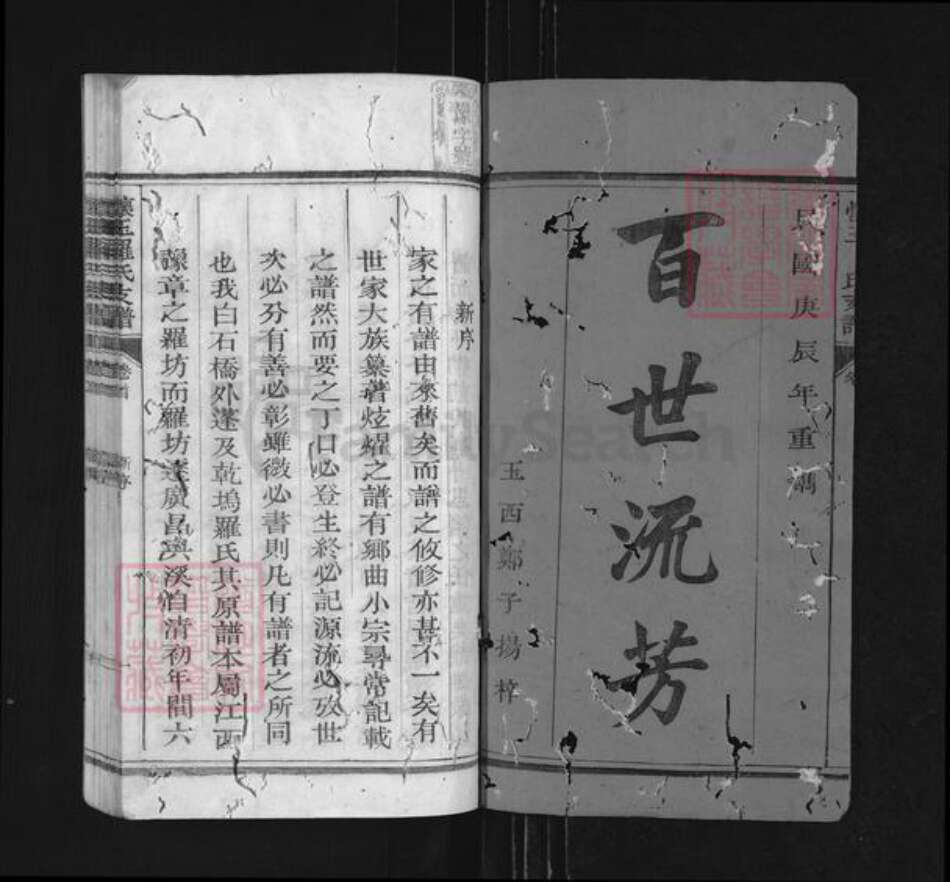 民國庚辰年重鐫
百世流芳
玉西鄭子揚梓
新序
家之有譜由來舊矣而譜之攸修亦甚不一矣有
世家大族纂著炫燿之譜有鄉曲小宗尋常記載
之譜然而要之丁口必登生終必記源流必攷世
次必分有善必彰雖微必書則凡有譜者之所同
也我白石橋外蓬及乾塢羅氏其原譜本屬江西
豫章之羅坊而羅坊遠廣昌溪自清初年間六
懷玉羅氏支譜
卷首
新序
FamilySearch